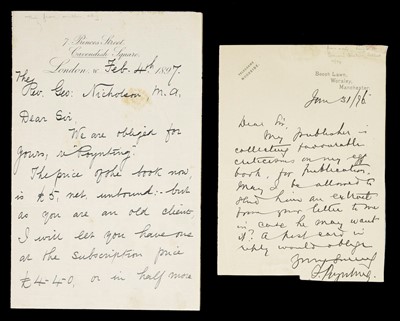 7 Princes Street,
Cavendish Square,
London, W. Feb. 4th 1897.
The
Rev. Geo. Nicholson M.A.
Dear Sir.
We are obliged for
yours, re Poynting.
The price of the book now,
is £5, net, unbound:- but
as you are an old client
I will let you have one
at the Subscription price
£4-4-0, or in half moro
Beech Lawn,
Worsley,
Manchester.
Jan 31/96
Dear Sir.
My publisher is
collecting favourable
criticisms on my egg
book, for publication.
May I be allowed to
an extract
from your letter to me
in case he may want
it? A post card in
reply would oblige
Yours sincerely
F. Poynting.